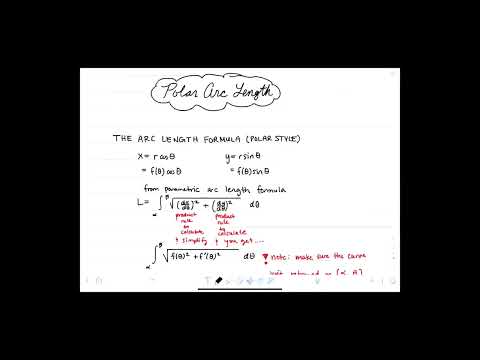 Polar Arc Length
THE ARC LENGTH FORMULA (POLAR STYLE)
x = r cos θ y = r sin θ
= f(θ) cos θ = f(θ) sin θ
from parametric arc length formula
L = ∫_α^β √((dx/dθ)² + (dy/dθ)²) dθ
product product
rule rule
to to
calculate calculate
& simplify & you get....
∫_α^β √(f(θ)² + f'(θ)²) dθ
note: make sure the curve
[α, β]